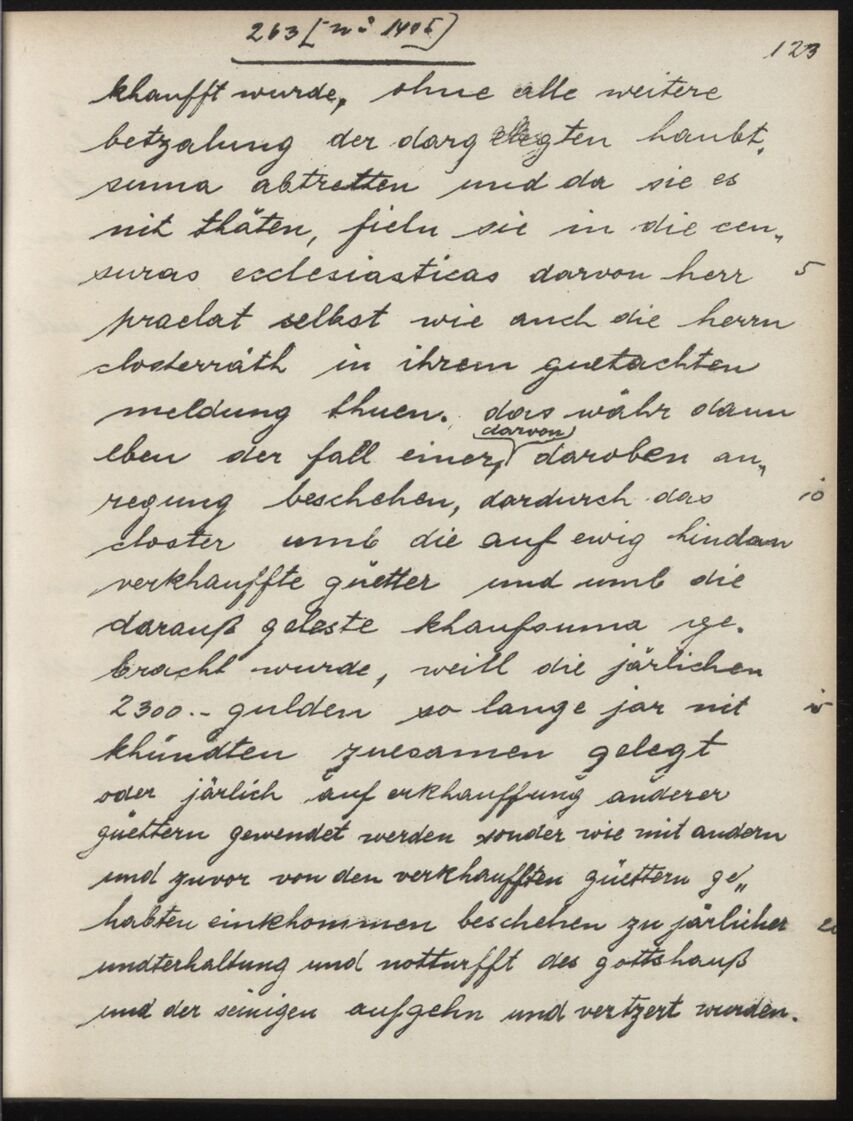 263 [nº 1405]
123
khaufft wurde, ohne alle weitere
betzalung der darg elegten haubt„
suma abtretten und da sie es
nit thäten, fieln sie in die cen„
suras ecclesiasticas darvon herr 5
praelat selbst wie auch die herrn
closterräth in ihrem guetachten
meldung thuen. das währ dann
eben der fall einer, darvon daroben an„
regung beschehen, dardurch das 10
closter umb die auf ewig hindan
verkhauffte güetter und umb die
darauß geleste khaufsuma ge„
bracht wurde, weill die järlichen
2300.- gulden so lange jar nit 15
khündten zuesamen gelegt
oder järlich auf erkhauffung anderer
güettern gewendet werden sonder wie mit andern
und zuvor von den verkhaufften güettern ge„
habten einkhommen beschehen zu järlicher 20
undterhaltung und notturfft des gottshauß
und der seinigen aufgehn und vertzert wurden.